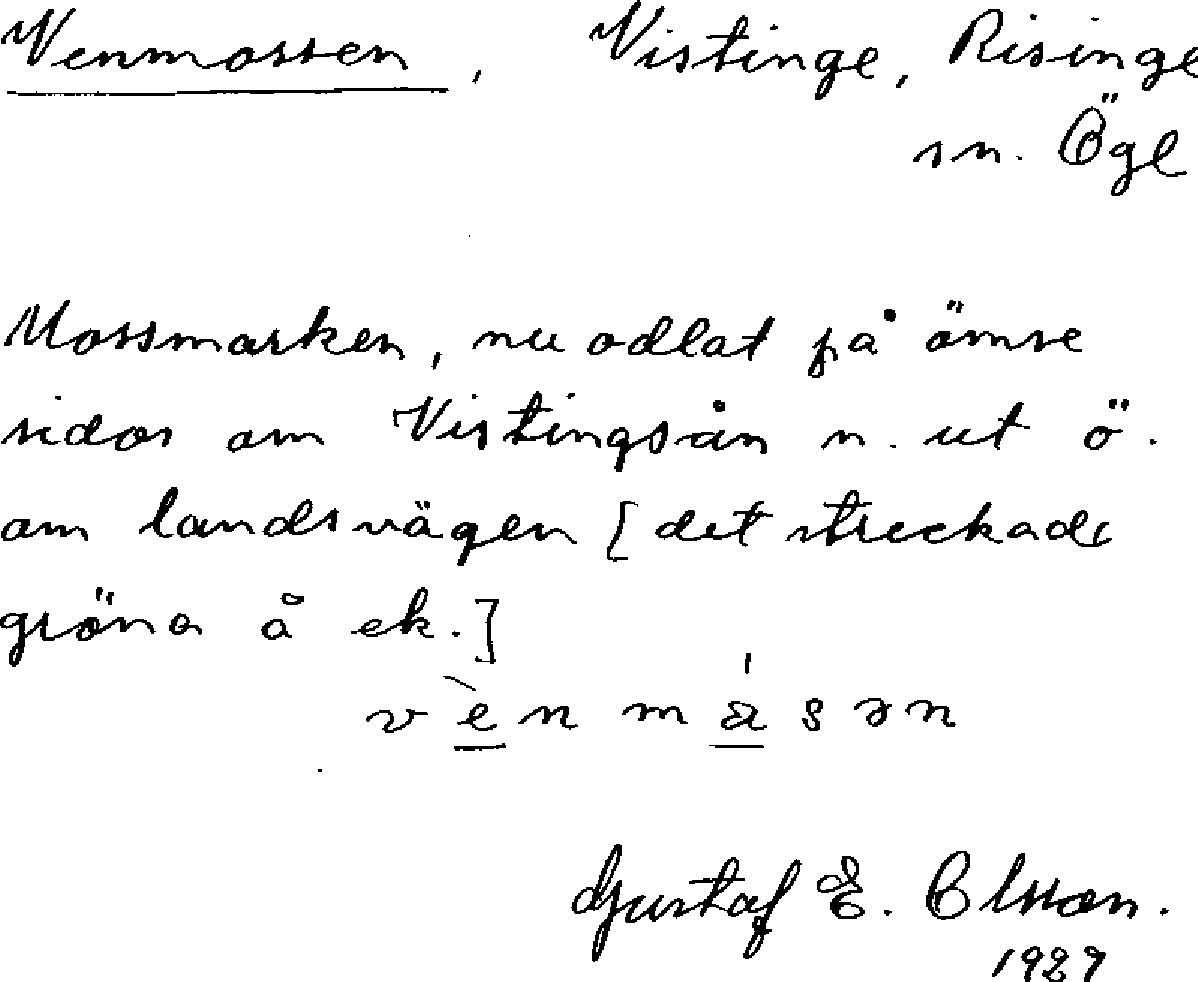 Venmossen, Vistinge, Risinge
sn. Ögl
Mossmarken, nu odlat på ömse
sidor om Vistingsån n. ut ö.
om landsvägen [det streckade
gröna å ek.]
vènmåsən
Gustaf E. Olsson.
1929